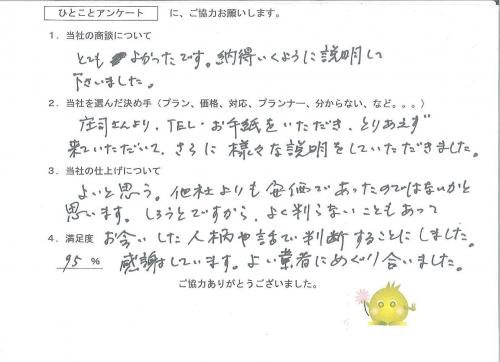 ひとことアンケート に、ご協力お願いします。
1. 当社の商談について
とても よかったです。納得いくように説明して
下さいました。
2. 当社を選んだ決め手（プラン、価格、対応、プランナー、分からない、など。。。）
庄司さんより、TEL・お手紙をいただき、とりあえず
来ていただいて、さらに 様々な説明をしていただきました。
3. 当社の仕上げについて
よいと思う。他社よりも安価であったのではないかと
思います。しろうとですから、よく判らないこともあって
4. 満足度 お会いした人柄や話で判断することにしました。
95 % 感謝しています。よい業者にめぐり合いました。
ご協力ありがとうございました。